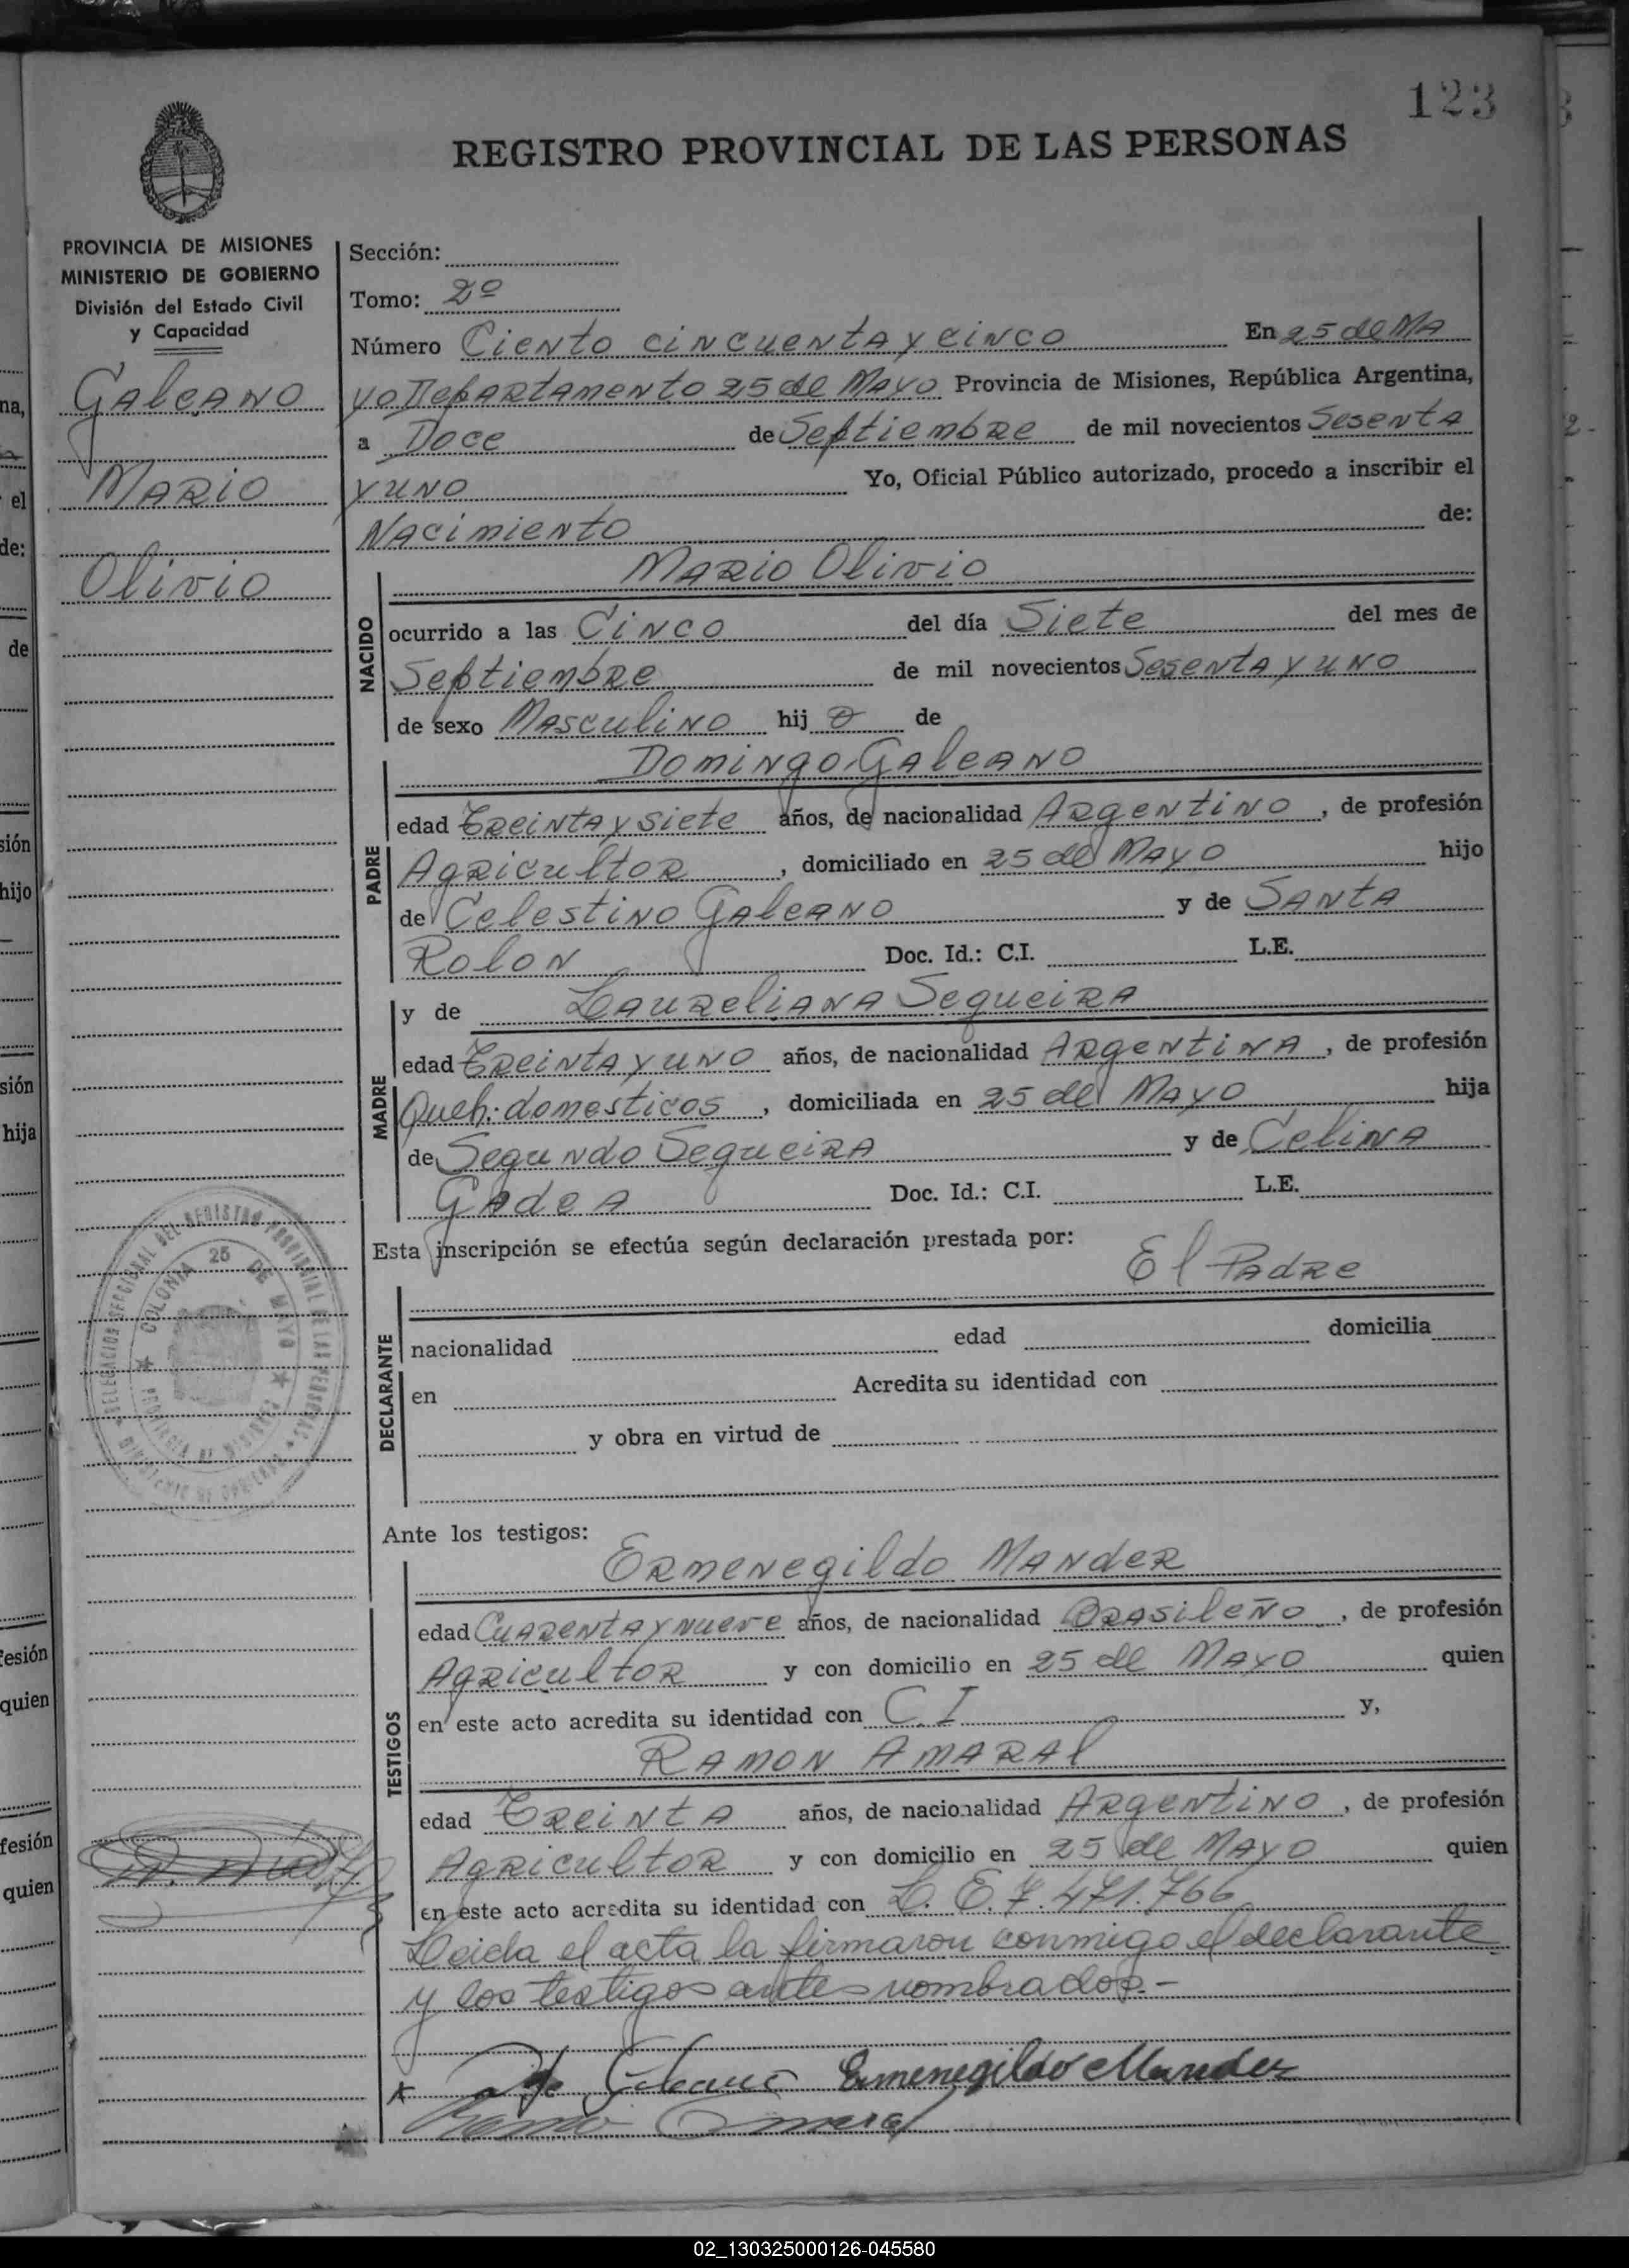 123
REGISTRO PROVINCIAL DE LAS PERSONAS
PROVINCIA DE MISIONES
MINISTERIO DE GOBIERNO
División del Estado Civil
y Capacidad
Galeano
Mario
Olivio
Sección:
Tomo: 2º
Número Ciento cincuenta y cinco En 25 de Ma
yo Departamento 25 de Mayo Provincia de Misiones, República Argentina,
a Doce de Septiembre de mil novecientos Sesenta
y uno Yo, Oficial Público autorizado, procedo a inscribir el
Nacimiento de:
Mario Olivio
NACIDO
ocurrido a las Cinco del día Siete del mes de
Septiembre de mil novecientos Sesenta y uno
de sexo Masculino hij o de
Domingo Galeano
PADRE
edad Treinta y siete años, de nacionalidad Argentino, de profesión
Agricultor, domiciliado en 25 de Mayo hijo
de Celestino Galeano y de Santa
Rolon Doc. Id.: C.I. L.E.
y de Laureliana Sequeira
MADRE
edad Treinta y uno años, de nacionalidad Argentina, de profesión
Queh: domesticos, domiciliada en 25 de Mayo hija
de Segundo Sequeira y de Celina
Godea Doc. Id.: C.I. L.E.
Esta inscripción se efectúa según declaración prestada por:
El Padre
DECLARANTE
nacionalidad edad domicilia
en Acredita su identidad con
y obra en virtud de
DELEGACION SECCIONAL DEL REGISTRO PROVINCIAL DE LAS PERSONAS
COLONIA 25 DE MAYO
PROVINCIA DE MISIONES
MINISTERIO DE GOBIERNO
Ante los testigos:
Ermenegildo Mander
TESTIGOS
edad Cuarenta y nueve años, de nacionalidad Brasileño, de profesión
Agricultor y con domicilio en 25 de Mayo quien
en este acto acredita su identidad con C. I y,
Ramon Amaral
edad Treinta años, de nacionalidad Argentino, de profesión
Agricultor y con domicilio en 25 de Mayo quien
en este acto acredita su identidad con L. E. 7.471.766
Leida el acta la firmaron conmigo el declarante
y los testigos antes nombrados.-
Galeano Ermenegildo Mander
Amaral
02_130325000126-045580